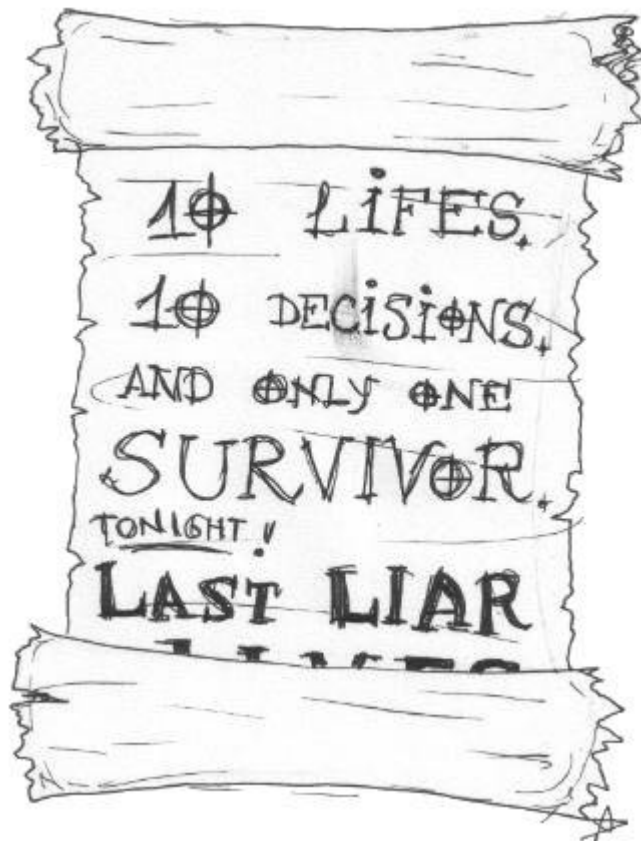 10 LiFES.
10 DECiSiONS.
AND ONLY ONE
SURVIVOR.
TONIGHT!
LAST LIAR
LIVES